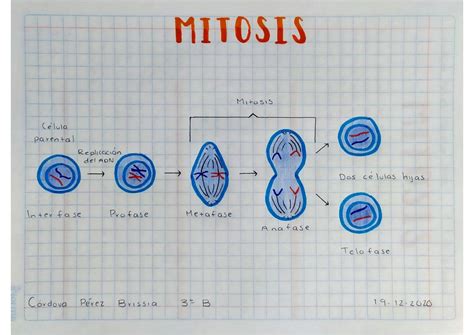 MITOSIS
Mitosis
Célula
parental
Replicación
del ADN
Dos células hijas
Interfase
Profase
Metafase
Anafase
Telofase
Córdova Pérez Brissia 3º B
19-12-2020